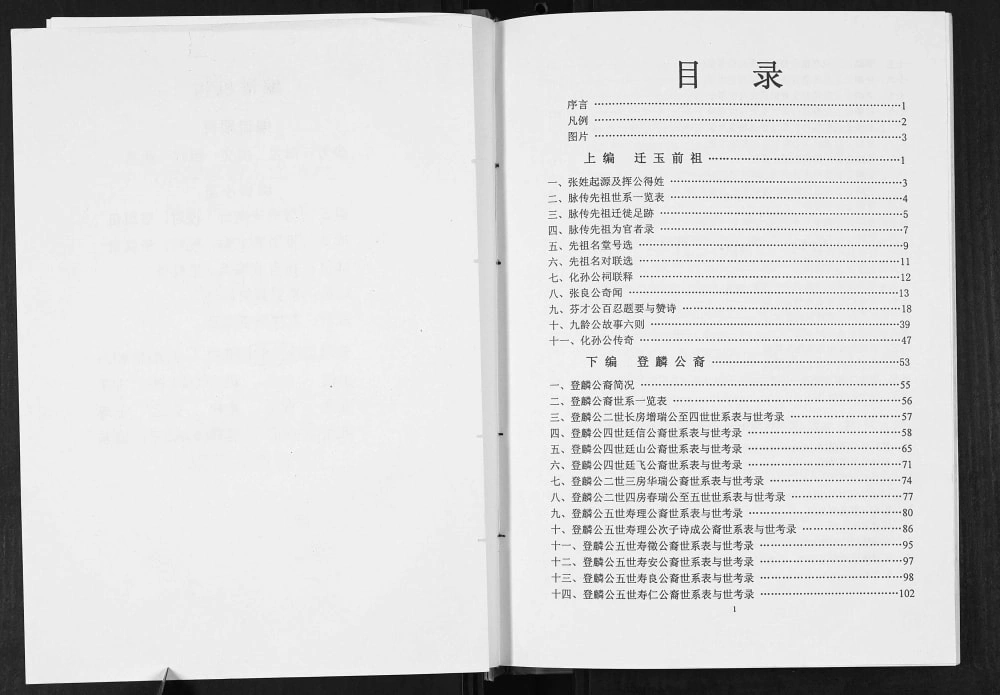 目 录
序言 …… 1
凡例 …… 2
图片 …… 3
上编 迁玉前祖 …… 1
一、张姓起源及挥公得姓 …… 3
二、脉传先祖世系一览表 …… 4
三、脉传先祖迁徙足跡 …… 5
四、脉传先祖为官者录 …… 7
五、先祖名堂号选 …… 9
六、先祖名对联选 …… 11
七、化孙公祠联释 …… 12
八、张良公奇闻 …… 13
九、芬才公百忍题要与赞诗 …… 18
十、九龄公故事六则 …… 39
十一、化孙公传奇 …… 47
下编 登麟公裔 …… 53
一、登麟公裔简况 …… 55
二、登麟公裔世系一览表 …… 56
三、登麟公二世长房增瑞公至四世世系表与世考录 …… 57
四、登麟公四世廷信公裔世系表与世考录 …… 58
五、登麟公四世廷山公裔世系表与世考录 …… 65
六、登麟公四世廷飞公裔世系表与世考录 …… 71
七、登麟公二世三房华瑞公裔世系表与世考录 …… 74
八、登麟公二世四房春瑞公至五世世系表与世考录 …… 77
九、登麟公五世寿理公裔世系表与世考录 …… 80
十、登麟公五世寿理公次子诗成公裔世系表与世考录 …… 86
十一、登麟公五世寿徵公裔世系表与世考录 …… 95
十二、登麟公五世寿安公裔世系表与世考录 …… 97
十三、登麟公五世寿良公裔世系表与世考录 …… 98
十四、登麟公五世寿仁公裔世系表与世考录 …… 102
1